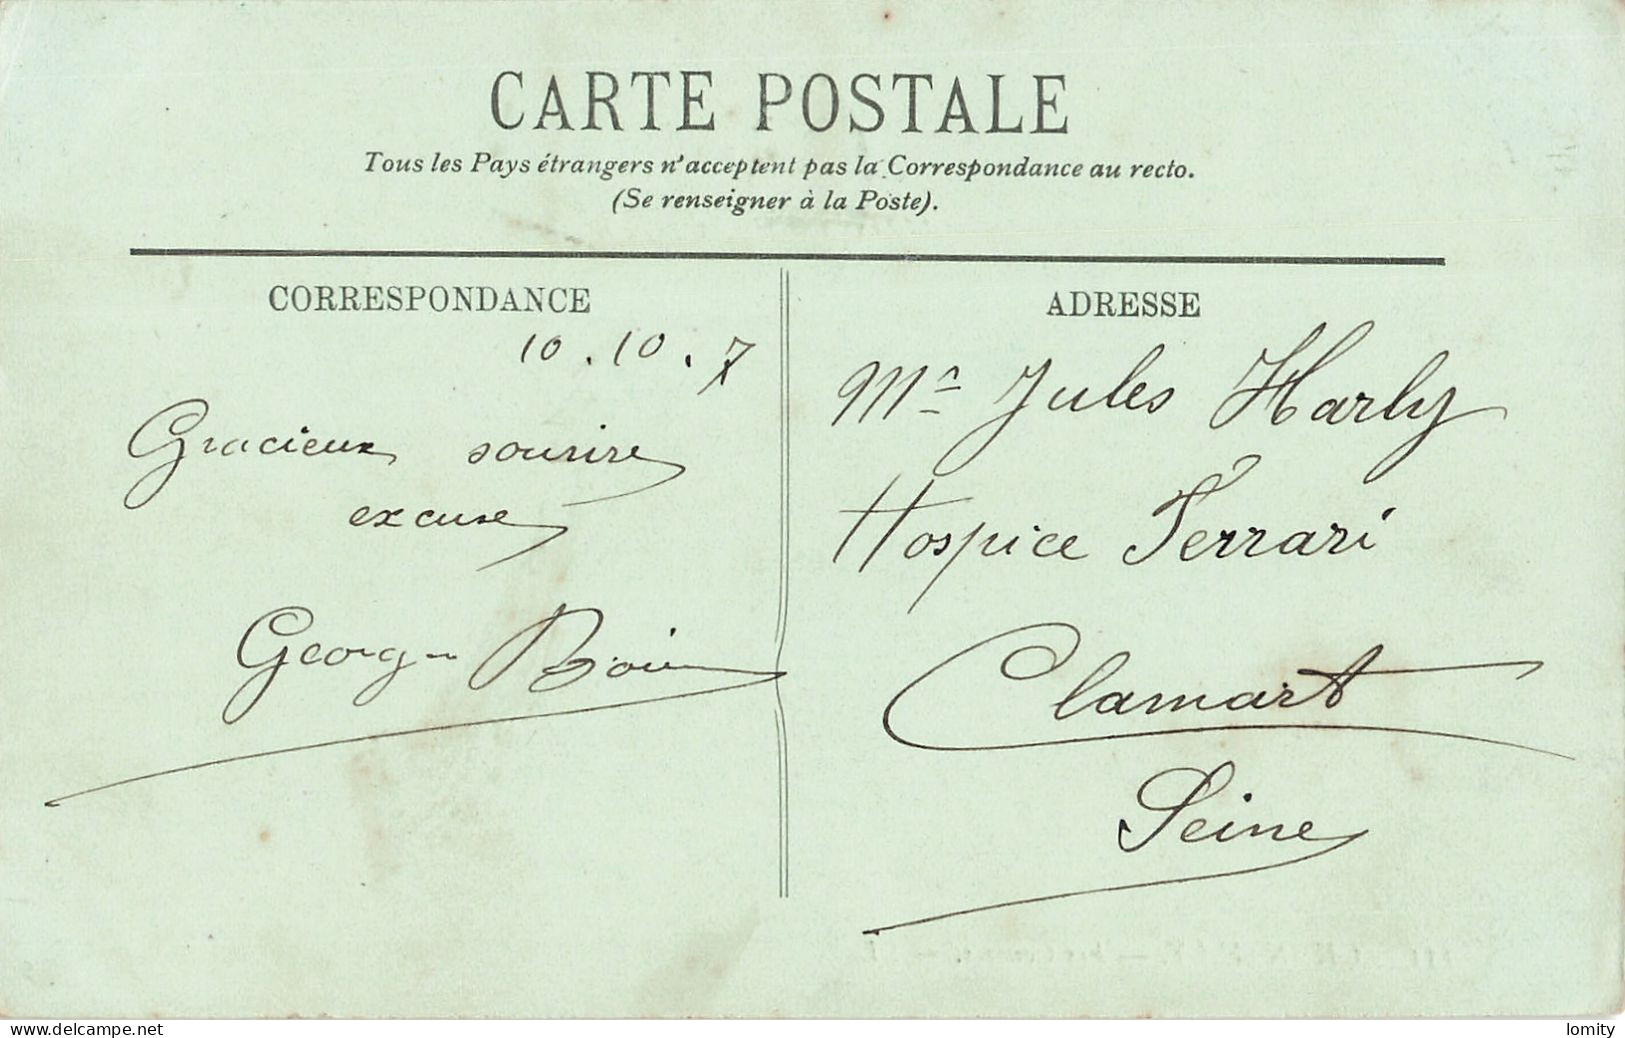 CARTE POSTALE
Tous les Pays étrangers n'acceptent pas la Correspondance au recto.
(Se renseigner à la Poste).
CORRESPONDANCE
10.10.7
Gracieux sourire
excuse
ADRESSE
Mr Jules Harly
Hospice Ferrari
Clamart
Seine
www.delcampe.net
lomity